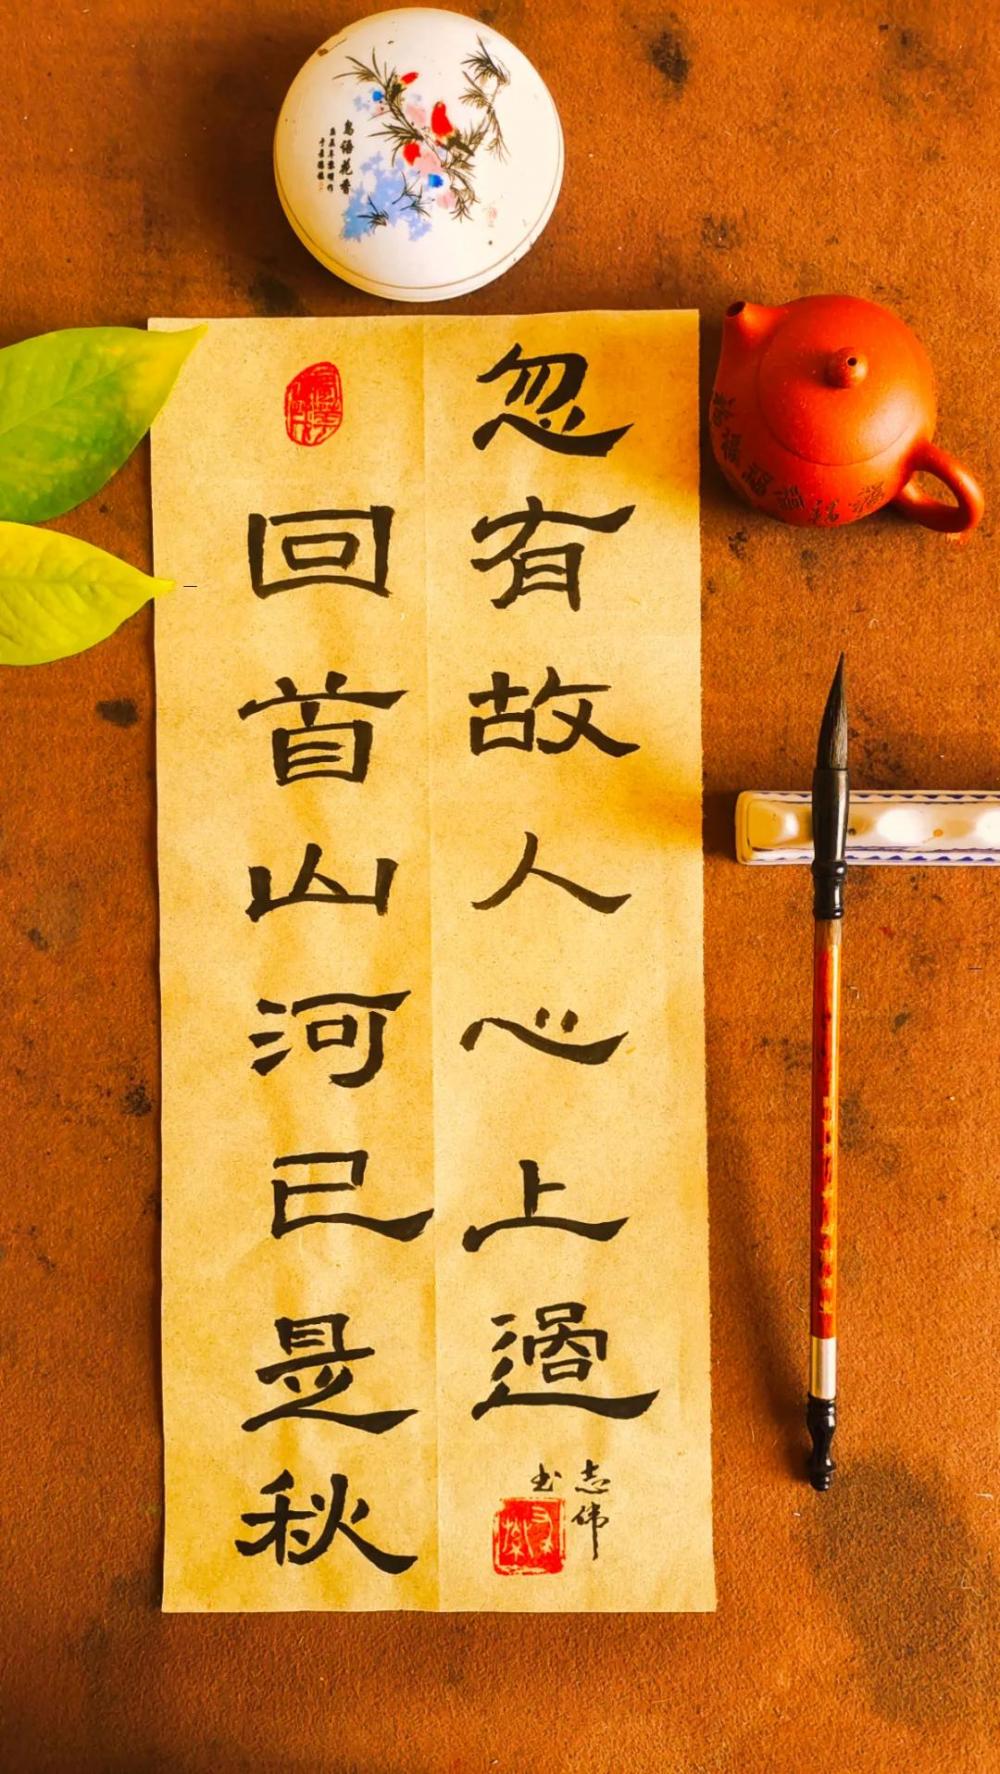 鳥語花香
忽有故人心上過
回首山河已是秋
志伟
书
福